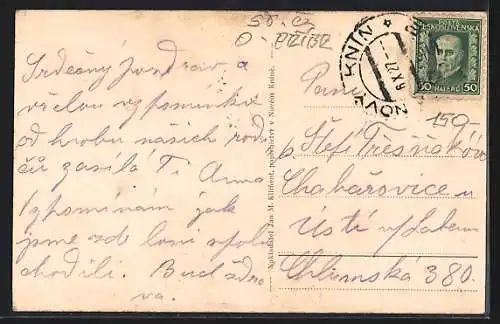 O - PŘÍBR
Srdečný pozdrav a
vřelou vzpomínku
od hrobu našich rod
čů zasílá Ti Anna
Vzpomínám jak
jsme zde loni spolu
chodili. Buď zdro
va.
Nakladatel Jan M. Klithout, papírnictví v Novém Kníně.
NOVÝ KNÍN
POŠTA
ČESKOSLOVENSKÁ
50 HALÉŘŮ 50
150-
Paní
Štěfi Třešňáková
Chabařovice u
Ústí n/Labem
Chlumská 380.